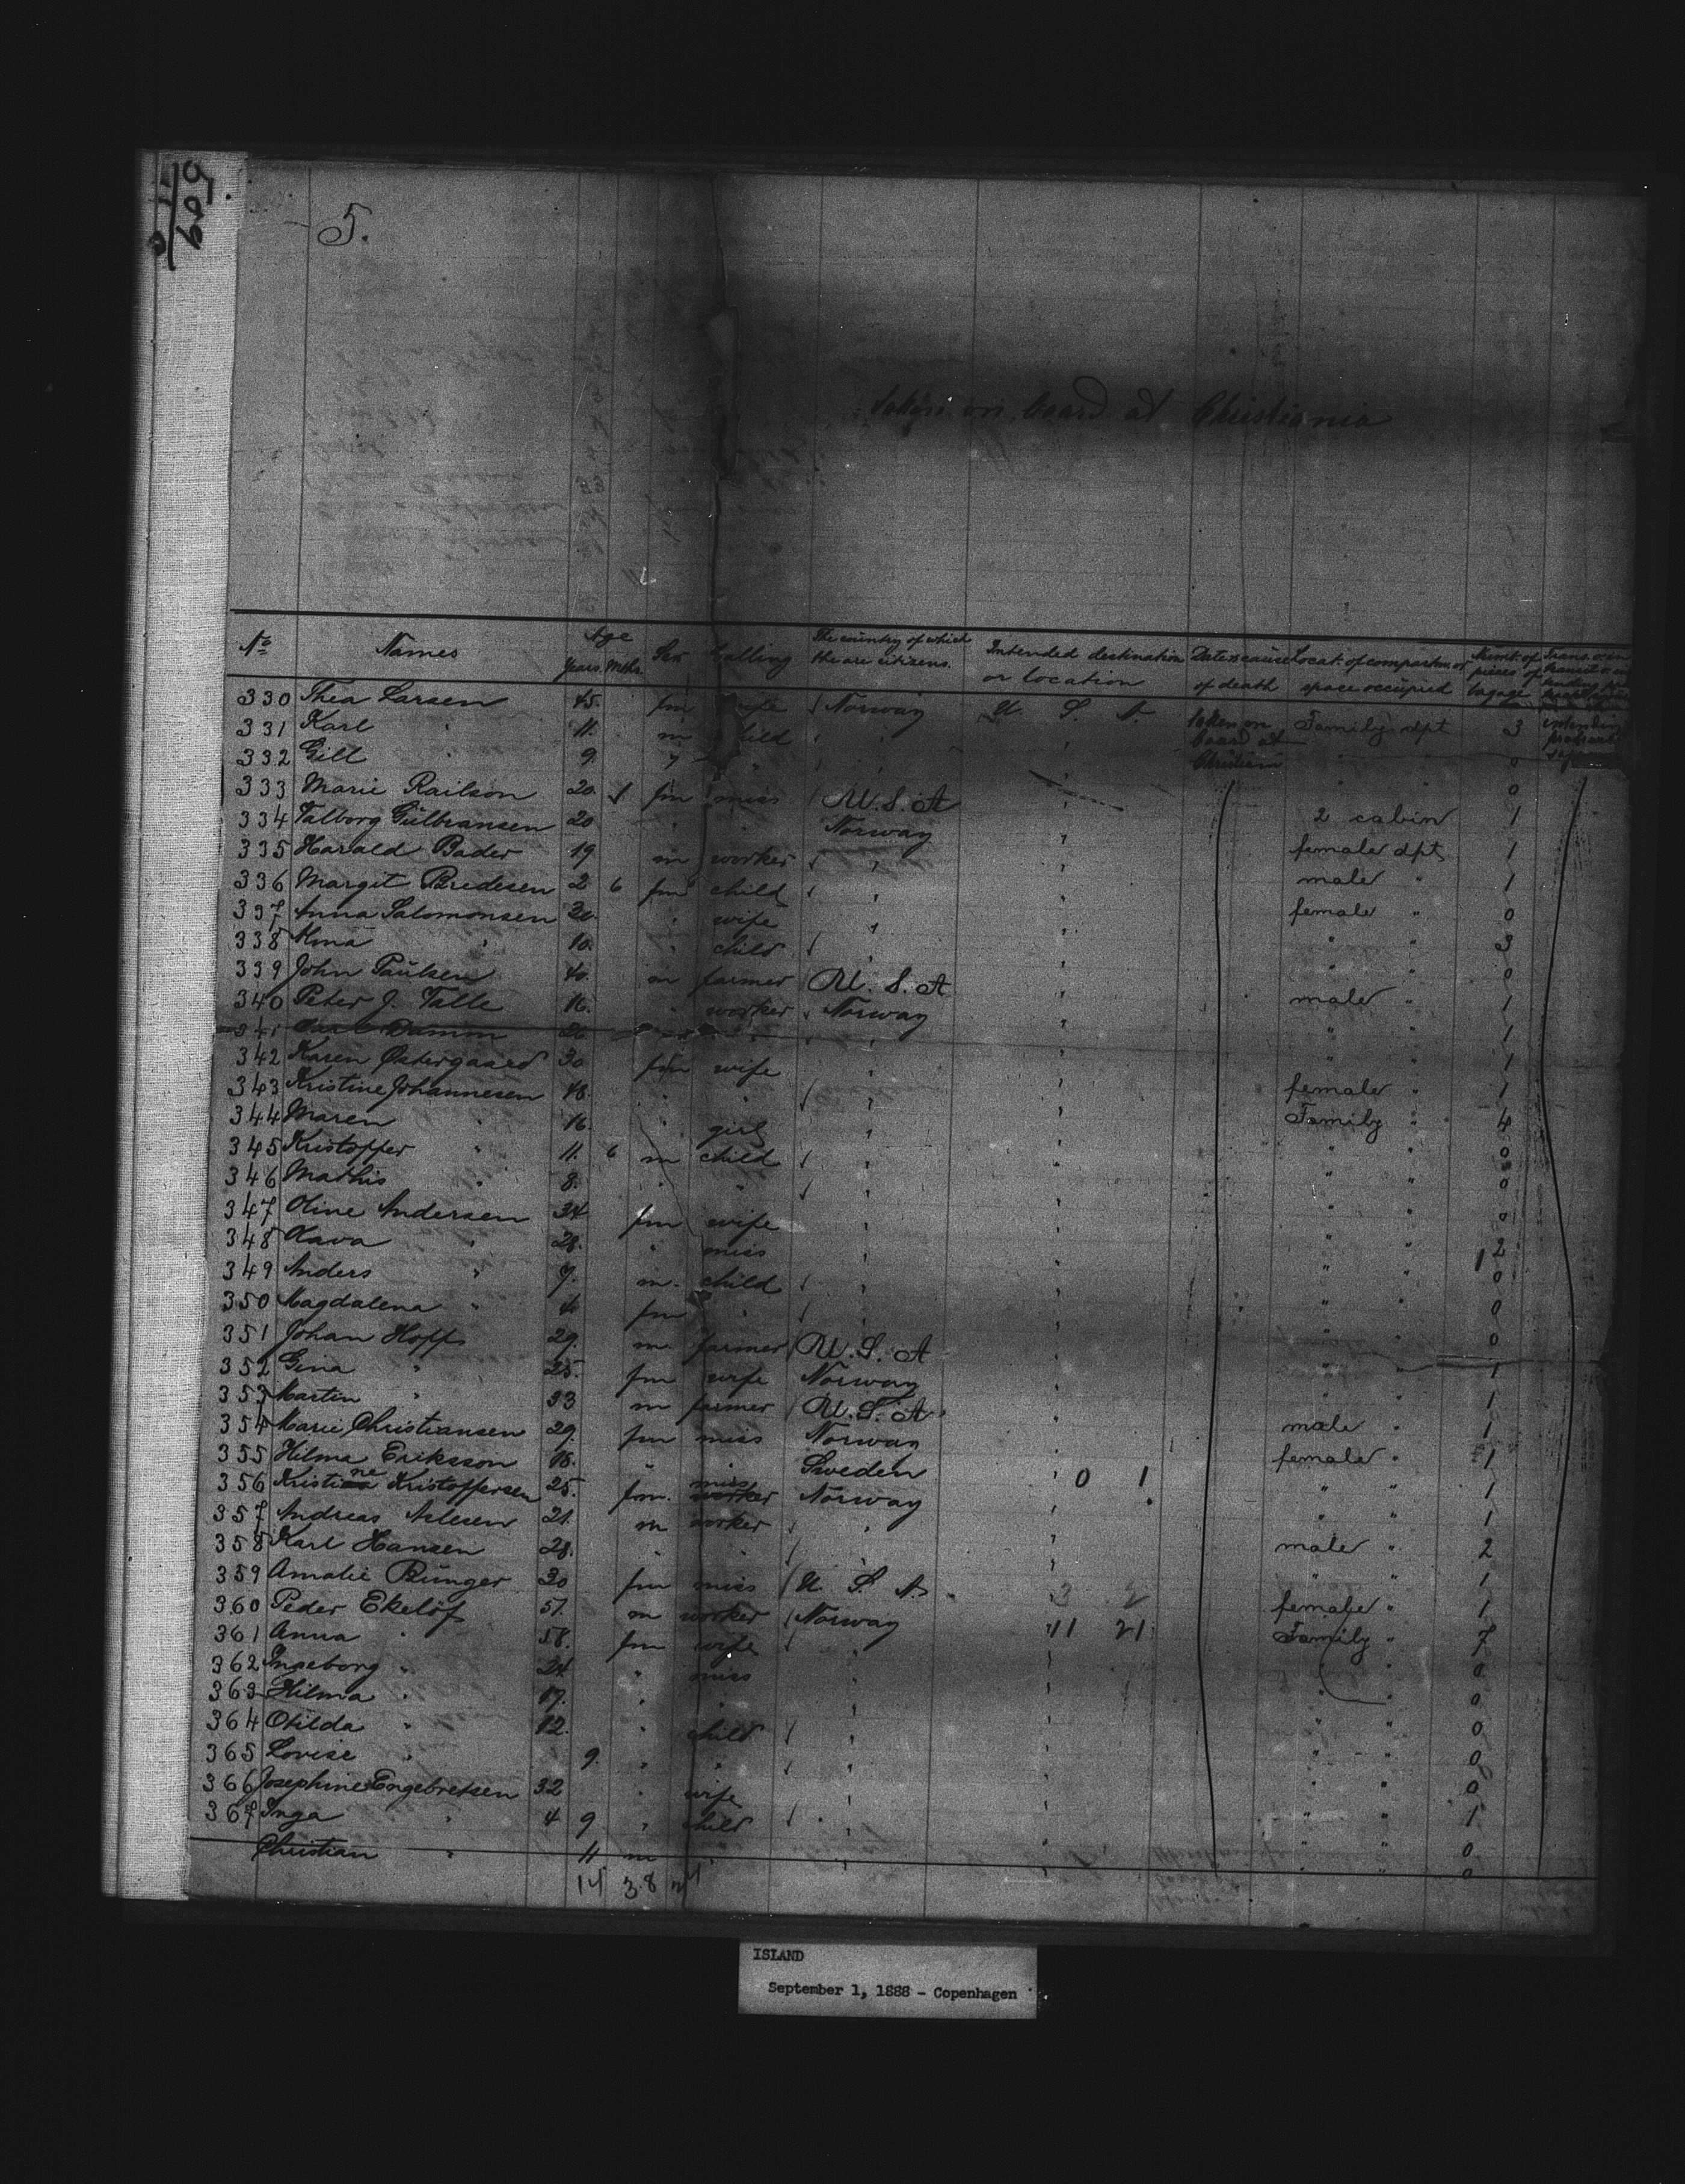 509
5.
taken on board at Christiania
No Names Age Years. Mths. Sex Calling The country of which the are citizens. Intended destination or location Date & cause of death Locat. of compartm. or space occupied Numb. of pieces of bagage
330 Thea Larsen 45. fm wife Norway U. S. A. taken on board at Christiania Family dpt 3
331 Karl " 11. m child " " 0
332 Gill " 9. " " " " 0
333 Marie Railson 20. fm miss U.S.A " 2 cabin 1
334 Valborg Gülbransen 20 " " Norway " female dpt 1
335 Harald Bader 19 m worker " " male " 1
336 Margit Bredesen 2 6 fm child " " female " 0
337 Anna Salomonsen 30. " wife " " " " 3
338 Alma " 10. " child " " " " 0
339 John Paülsen 40. m farmer U. S. A " male " 1
340 Peter J. Talle 16. " worker Norway " " " 1
341 Damm 26 " " " " 1
342 Karen Østergaard 30 fm wife " " female " 1
343 Kristine Johannesen 48. " " " " Family " 4
344 Maren " 16. " girl " " " " 0
345 Kristoffer " 11. 6 m child " " " " 0
346 Mathis " 8. " " " " " " 0
347 Oline Andersen 34 fm wife " " " " 2
348 " 28. " miss " " " " 0
349 Anders " 7. m. child " " " " 0
350 Magdalena " 4. fm " " " " " 0
351 Johan Hoff 29. m. farmer U. S. A " " " 1
352 Gina " 25. fm wife Norway " " " 1
353 Martin " 33 m farmer U.S.A " male " 1
354 Marie Christiansen 29. fm miss Norway " female " 1
355 Hilma Eriksson 18. " " Sweden " 0 1 " " 1
356 Kristine Kristoffersen 25. fm. miss Norway " " " 1
357 Andreas 21. m worker " " male " 2
358 Karl Hansen 28. " " " " " " 1
359 Amalie Bünger 30 fm miss U. S. A. 3 2 female " 1
360 Peder Ekelöf 51. m worker Norway 11 21 Family " 7
361 Anna " 58. fm wife " " " 0
362 Ingeborg " 24. " miss " " " " 0
363 Hilma " 17. " " " " " " 0
364 Otilda " 12. " child " " " " 0
365 Lovise " 9. " " " " " " 0
366 Josephine Engebretsen 32 " wife " " " " 1
367 Inga " 4 9 " child " " " " 0
Christian " 11 m " " " " " 0
14 38 24
ISLAND
September 1, 1888 - Copenhagen